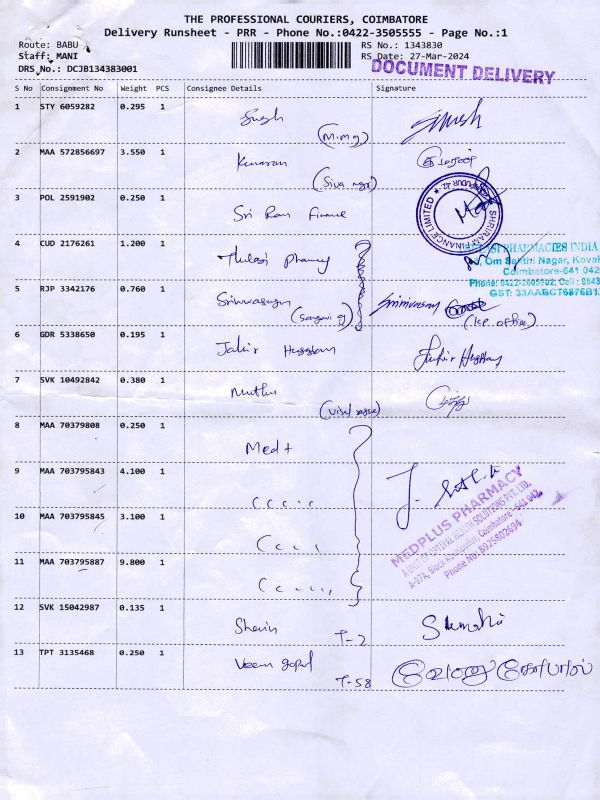 THE PROFESSIONAL COURIERS, COIMBATORE
Delivery Runsheet - PRR - Phone No.:0422-3505555 - Page No.:1
Route: BABU RS No.: 1343830
Staff: MANI RS Date: 27-Mar-2024
DRS No.: DCJB134383001 DOCUMENT DELIVERY
S No Consignment No Weight PCS Consignee Details Signature
1 STY 6059282 0.295 1
2 MAA 572856697 3.550 1
3 POL 2591902 0.250 1 Sri Ram Finance
SHRIRAM FINANCE LIMITED
4 CUD 2176261 1.200 1 Thulasi pharmacy
PHARMACIES INDIA
Om Sakthi Nagar, Kovai
Coimbatore-641 042
Phone: 0422-2605902; Cell: 9843
GST: 33AABCT6876B1
5 RJP 3342176 0.760 1 Srinivasan
6 GDR 5338650 0.195 1 Jakir Hussain
7 SVK 10492842 0.380 1 Muthu
8 MAA 70379808 0.250 1 Med+
9 MAA 703795843 4.100 1
10 MAA 703795845 3.100 1
MEDPLUS PHARMACY
A UNIT OF OPTIVAL HEALTH SOLUTIONS PVT. LTD.
Coimbatore - 641 042
Phone No: 8925802694
11 MAA 703795887 9.800 1
12 SVK 15042987 0.135 1 T-2
13 TPT 3135468 0.250 1 Veenu gopal T-58 வேணு கோபால்